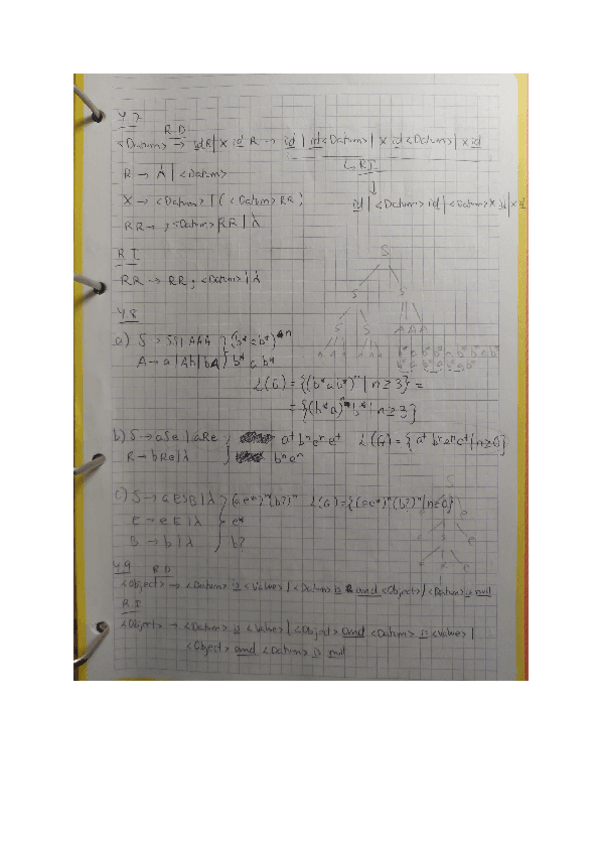 4.7
R D
<Datum> → id R | X id R → id | id <Datum> | X id <Datum> | X id
R → λ | <Datum>
↳ R I
X → <Datum> | ( <Datum> RR )
id | <Datum> id | <Datum> X id | X id
RR → , <Datum> RR | λ
R I
RR → RR , <Datum> | λ
4.8
a) S → SS | AAA } (b* a b*)
A → a | Ab | bA } b* a b*
L(G) = {(b* a b*)ⁿ | n ≥ 3} =
= {(b* a)ⁿ b* | n ≥ 3}
b) S → aSe | aRe } a⁺ bⁿ eⁿ e⁺ L(G) = { a⁺ bⁿ eⁿ e⁺ | n ≥ 0}
R → bRe | λ } bⁿ eⁿ
c) S → a E S B | λ } (a e*)ⁿ (b?)ⁿ L(G) = {(a e*)ⁿ (b?)ⁿ | n ≥ 0}
E → e E | λ } e*
B → b | λ } b?
4.9 R D
<Object> → <Datum> is <Value> | <Datum> is and <Object> | <Datum> is null
R I
<Object> → <Datum> is <Value> | <Object> and <Datum> is <Value> |
<Object> and <Datum> is null